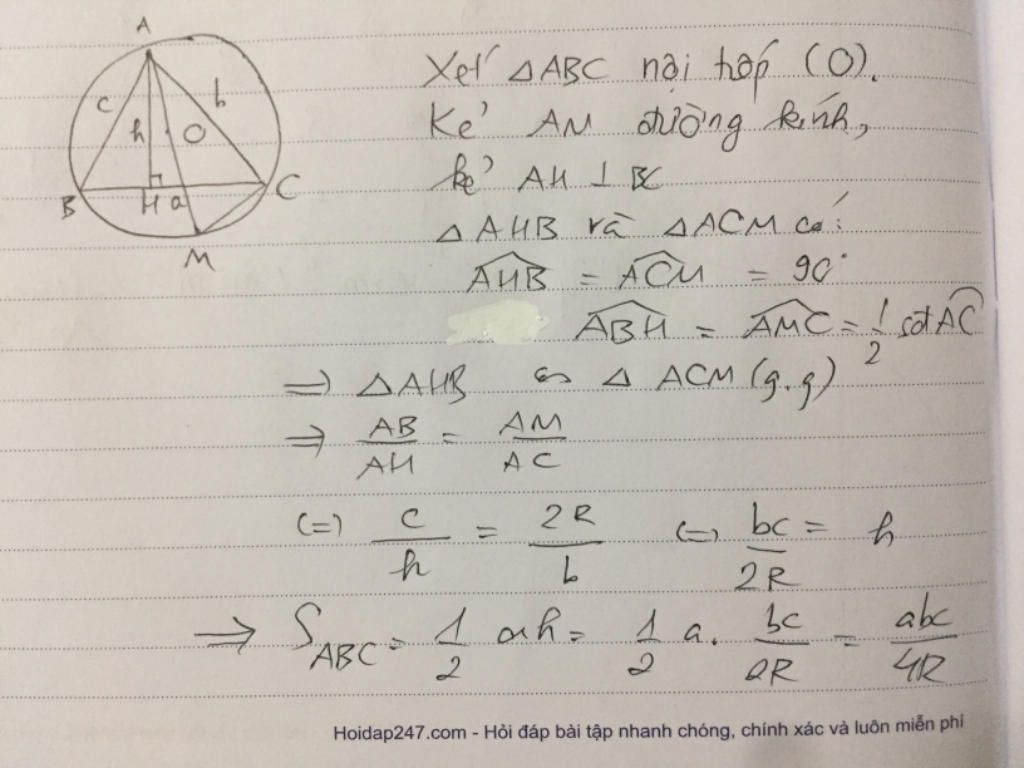 A
c
b
h
O
B
H
a
C
M
Xét △ABC nội tiếp (O).
Kẻ AM đường kính,
kẻ AH ⊥ BC
△AHB và △ACM có:
\widehat{AHB} = \widehat{ACM} = 90°
\widehat{ABH} = \widehat{AMC} = \frac{1}{2} sđ \overset{\frown}{AC}
⇒ △AHB ∽ △ACM (g.g)
⇒ \frac{AB}{AH} = \frac{AM}{AC}
(=) \frac{c}{h} = \frac{2R}{b} (=) \frac{bc}{2R} = h
⇒ S_{ABC} = \frac{1}{2} ah = \frac{1}{2} a. \frac{bc}{2R} = \frac{abc}{4R}
Hoidap247.com - Hỏi đáp bài tập nhanh chóng, chính xác và luôn miễn phí